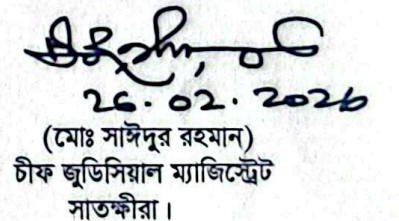 26.02.2026
(মোঃ সাঈদুর রহমান)
চীফ জুডিসিয়াল ম্যাজিস্ট্রেট
সাতক্ষীরা।